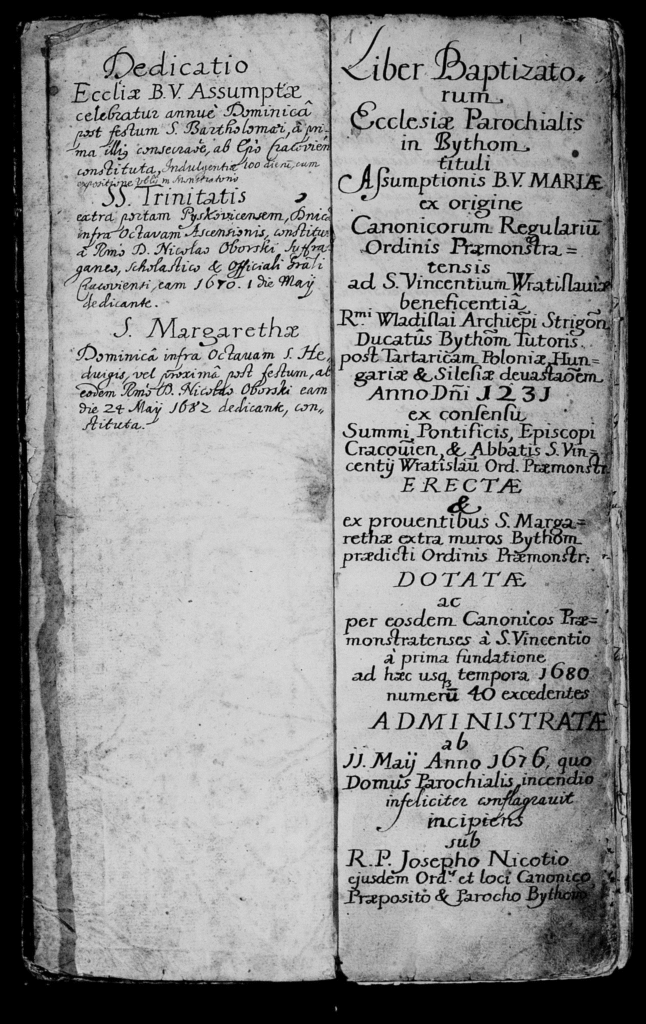 Dedicatio
Eccliæ B.V. Assumptæ
celebratur annuè Dominicâ
post festum S. Bartholomæi, à pri-
ma illig consecraõe, ab Epo Cracovien
constituta, Indulgentiæ 100 dierũ, cum
expositione
SS. Trinitatis
extra portam Pyskovicensem, Dnicâ
infra Octavam Ascensionis, constituta
à Rm̃o D. Nicolao Oborski Suffra-
ganeo, Scholastico & Officiali Grãli
Cracoviensi, eam 1670. 1 die Maÿ
dedicante.
S. Margarethæ
Dominicâ infra Octavam S. He-
duigis, vel proximâ post festum, ab
eodem Rm̃o D. Nicolao Oborski eam
die 24 Maÿ 1682 dedicante, con-
stituta.
1
Liber Baptizato-
rum
Ecclesiæ Parochialis
in Bythom
tituli
Aſsumptionis B.V. MARIÆ
ex origine
Canonicorum Regulariũ
Ordinis Præmonstra=
tensis
ad S. Vincentium Wratislauiæ
beneficentiâ
R.mi Wladislai Archiepi Strigon
Ducatûs Bythom̃ Tutoris
post Tartaricam Poloniæ, Hun=
gariæ & Silesiæ deuastaõem
Anno Dñi 1231
ex consensu
Summi Pontificis, Episcopi
Cracouien, & Abbatis S. Vin=
centÿ Wratislau Ord. Præmonstr.
ERECTÆ
&
ex prouentibus S. Marga=
rethæ extra muros Bythom
prædicti Ordinis Præmonstr:
DOTATÆ
ac
per eosdem Canonicos Præ=
monstratenses à S. Vincentio
à prima fundatione
ad hæc usq tempora 1680
numerũ 40 excedentes
ADMINISTRATÆ
ab
11. Maÿ Anno 1676, quo
Domus Parochialis incendio
infeliciter conflagrauit
incipiens
sub
R.P. Josepho Nicotio
ejusdem Ord. et loci Canonico,
Præposito & Parocho Bythom